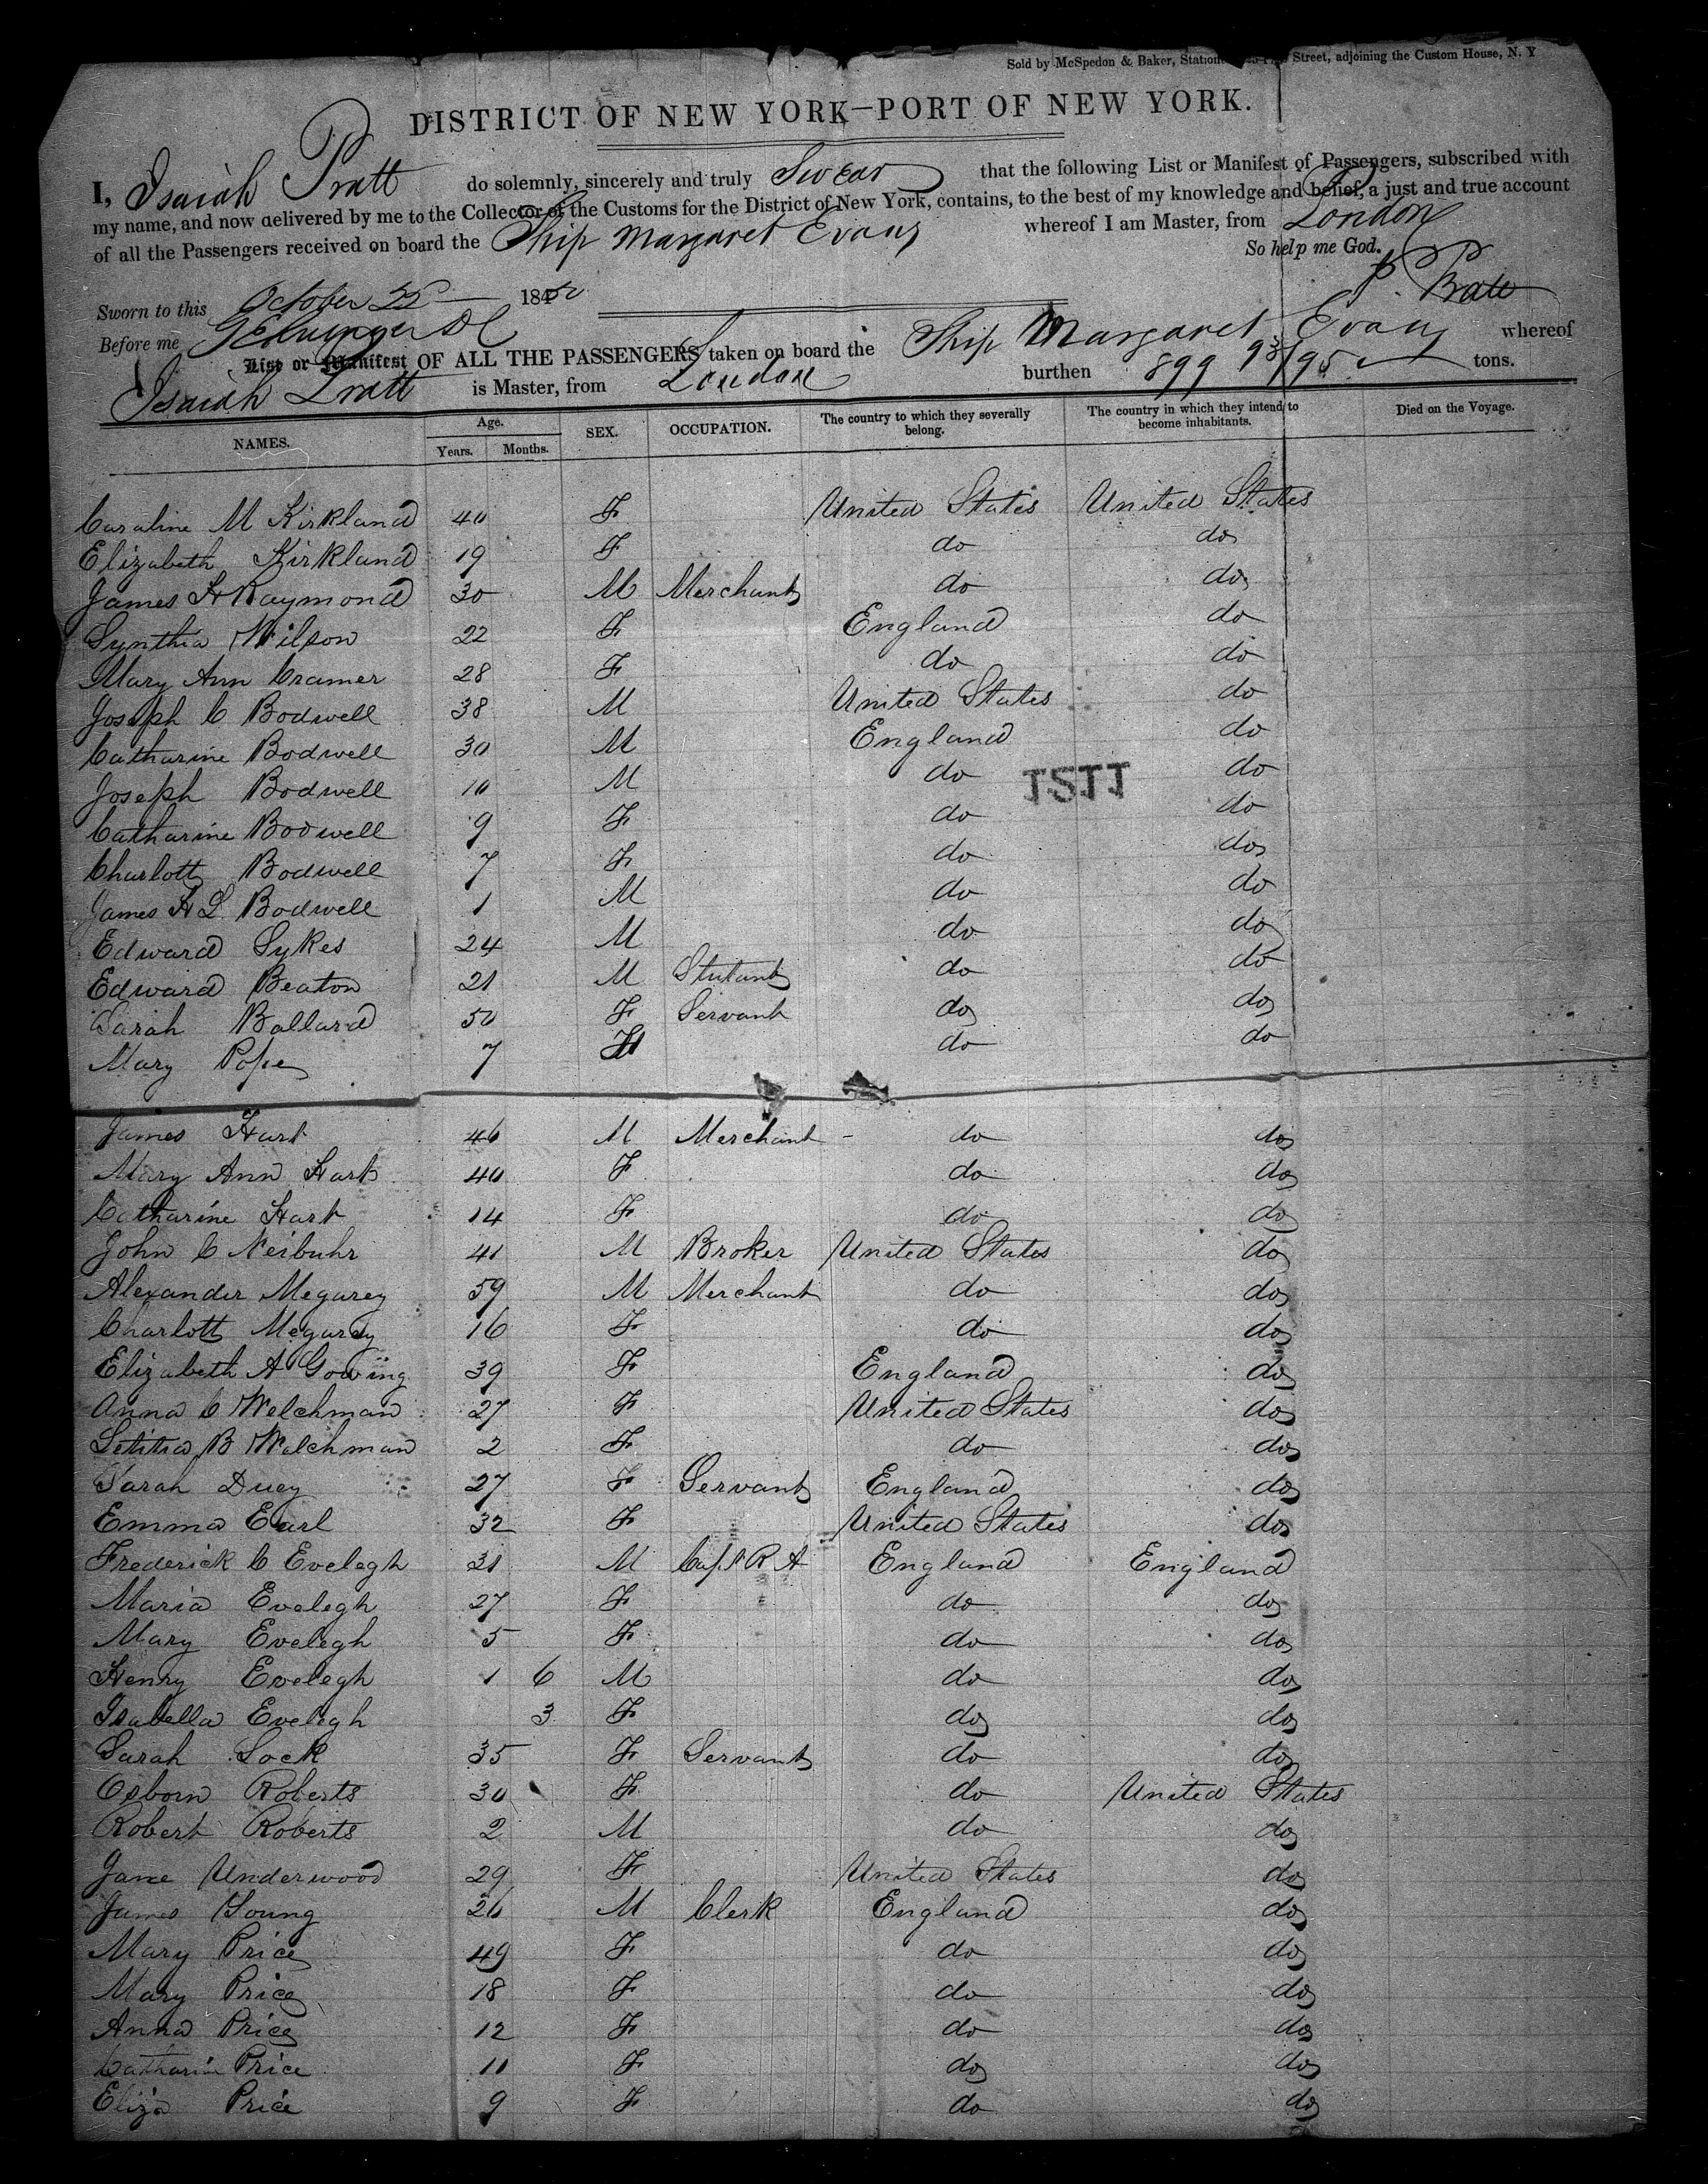 Sold by McSpedon & Baker, Street, adjoining the Custom House, N. Y
DISTRICT OF NEW YORK—PORT OF NEW YORK.
I, Isaiah Pratt do solemnly, sincerely and truly Swear that the following List or Manifest of Passengers, subscribed with
my name, and now delivered by me to the Collector of the Customs for the District of New York, contains, to the best of my knowledge and belief, a just and true account
of all the Passengers received on board the Ship Margaret Evans whereof I am Master, from London
So help me God.
Sworn to this October 25 1850
Before me
List or Manifest OF ALL THE PASSENGERS taken on board the Ship Margaret Evans whereof
Isaiah Pratt is Master, from London burthen 899 93/95 tons.
NAMES. Age. Years. Months. SEX. OCCUPATION. The country to which they severally belong. The country in which they intend to become inhabitants. Died on the Voyage.
Caroline M Kirkland 40 F United States United States
Elizabeth Kirkland 19 F do do
James H Raymond 30 M Merchant do do
Synthia Wilson 22 F England do
Mary Ann Cramer 28 F do do
Joseph C Bodwell 38 M United States do
Catharine Bodwell 30 M England do
Joseph Bodwell 10 M do do
Catharine Bodwell 9 F do do
Charlott Bodwell 7 F do do
James H L Bodwell 1 M do do
Edward Sykes 24 M do do
Edward Beaton 21 M do do
Sarah Ballard 50 F Servant do do
Mary Pope 7 do do
James Hart 46 M Merchant do do
Mary Ann Hart 40 F do do
Catharine Hart 14 F do do
John C Neibuhr 41 M Broker United States do
Alexander Megarey 59 M Merchant do do
Charlott Megarey 16 F do do
Elizabeth A Gowing 39 F England do
Anna C Welchman 27 F United States do
Letitia B Welchman 2 F do do
Sarah Duey 27 F Servant England do
Emma Earl 32 F United States do
Frederick C Evelegh 31 M Capt R A England England
Maria Evelegh 27 F do do
Mary Evelegh 5 F do do
Henry Evelegh 1 6 M do do
Isabella Evelegh 3 F do do
Sarah Lock 35 F Servant do do
Osborn Roberts 30 F do United States
Robert Roberts 2 M do do
Jane Underwood 29 F United States do
James Young 26 M Clerk England do
Mary Price 49 F do do
Mary Price 18 F do do
Anna Price 12 F do do
Catharin Price 11 F do do
Eliza Price 9 F do do